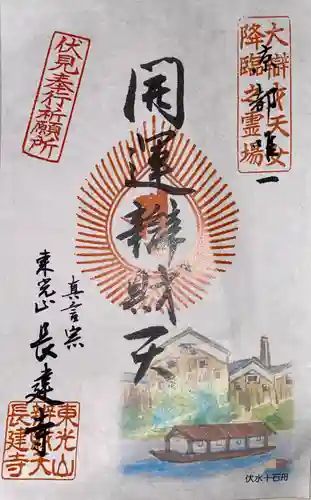 大辯才天女
降臨之霊場
京都唯一
伏見奉行祈願所
開運辯財天
真言宗
東光山
長建寺
東光山
辯財天
長建寺
伏水十石舟